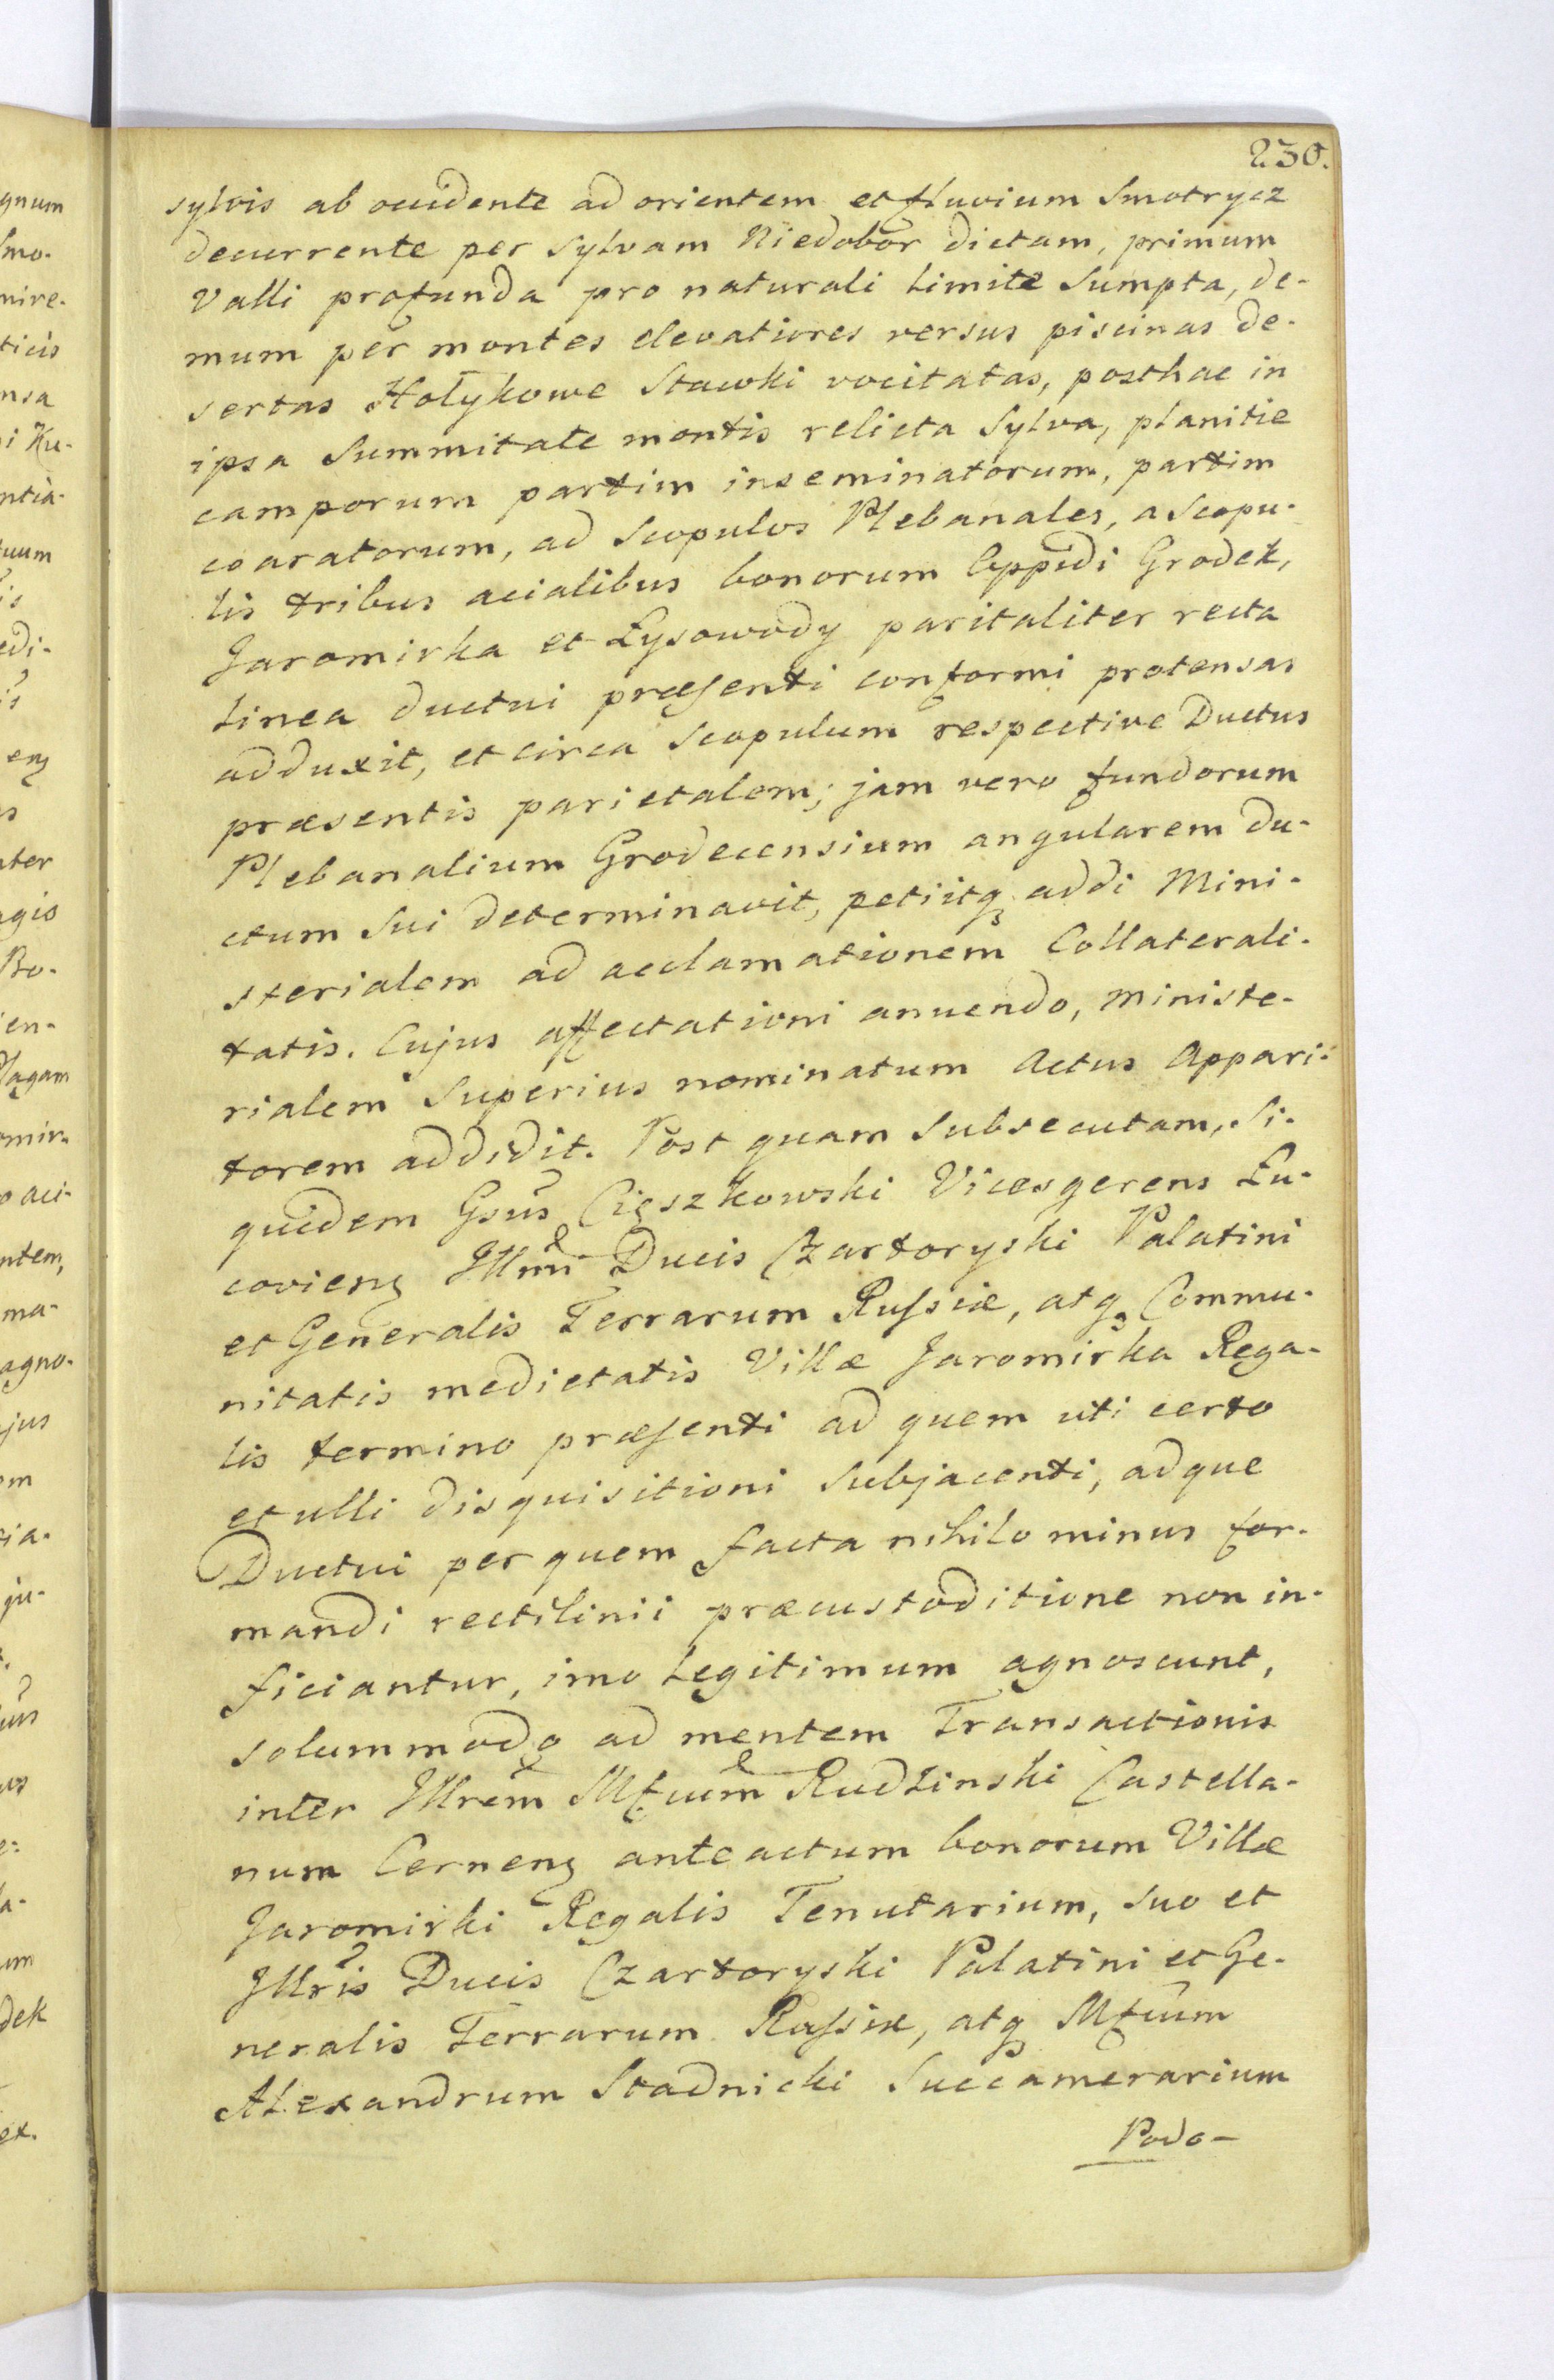 230.
sylvis ab occidente ad orientem et fluvium Smotrycz
decurrente per Sylvam Niedobor dictam, primum
Valli profunda pro naturali limite Sumpta, de-
mum per montes elevatiores versus piscinas de-
sertas Hołykowe Stawki vocitatas, posthac in
ipsa Summitate montis relicta Sylva, planitie
camporum partim inseminatorum, partim
coaratorum, ad Scopulos Plebanales, a Scopu-
lis tribus acialibus bonorum Oppidi Grodek,
Jaromirka et Łysowody paritaliter recta
Linea ductui præsenti conformi protensas
adduxit, et circa Scopulum respective Ductus
præsentis parietalem; jam vero fundorum
Plebanalium Grodecensium angularem du-
ctum Sui determinavit, petiitq addi Mini-
sterialem ad acclamationem Collaterali-
tatis. Cujus affectationi anuendo, Ministe-
rialem Superius nominatum Actus Appari-
torem addidit. Post quam Subsecutam, Si-
quidem Gsus Cięszkowski Vicesgerens Łu-
coviens Illmi Ducis Czartoryski Palatini
et Generalis Terrarum Russiæ, atq Commu-
nitatis medietatis Villæ Jaromirka Rega-
lis termino præsenti ad quem uti certo
et ulli disquisitioni Subjacenti, adque
Ductui per quem facta nihilo minus for-
mandi rectilinii præcustoditione non in-
ficiantur, imo Legitimum agnoscunt,
solummodo ad mentem Transactionis
inter Illrem Mfcum Rudzinski Castella-
num Cernens anteactum bonorum Villæ
Jaromirki Regalis Tenutarium, suo et
Illris Ducis Czartoryski Palatini et Ge-
neralis Terrarum Russiæ, atq Mfcum
Alexandrum Stadnicki Succamerarium
Podo-